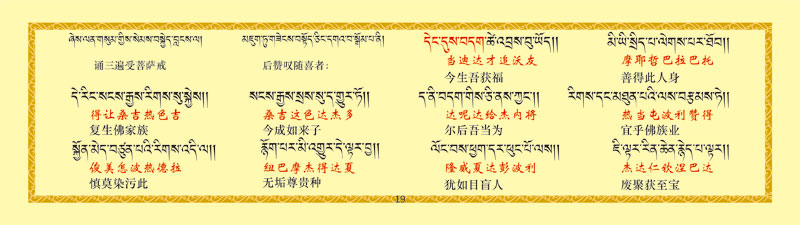 ཞེས་ལན་གསུམ་གྱིས་སེམས་བསྐྱེད་བླངས་ལ།
诵三遍受菩萨戒
མཇུག་ཏུ་གཟེངས་བསྟོད་ཅིང་དགའ་བ་སྒོམ་པ་ནི།
后赞叹随喜者:
དེང་དུས་བདག་ཚེ་འབྲས་བུ་ཡོད།།
当迪达才追沃友
今生吾获福
མི་ཡི་སྲིད་པ་ལེགས་པར་ཐོབ།།
摩耶哲巴拉巴托
善得此人身
དེ་རིང་སངས་རྒྱས་རིགས་སུ་སྐྱེས།།
得让桑吉热色吉
复生佛家族
སངས་རྒྱས་སྲས་སུ་ད་གྱུར་ཏོ།།
桑吉这色达杰多
今成如来子
ད་ནི་བདག་གིས་ཅི་ནས་ཀྱང་།།
达呢达给杰内将
尔后吾当为
རིགས་དང་མཐུན་པའི་ལས་བརྩམས་ཏེ།།
热当屯波利赞得
宜乎佛族业
སྐྱོན་མེད་བཙུན་པའི་རིགས་འདི་ལ།།
俊美怎波热德拉
慎莫染污此
རྙོག་པར་མི་འགྱུར་དེ་ལྟར་བྱ།།
纽巴摩杰得达夏
无垢尊贵种
ལོང་བས་ཕྱག་དར་ཕུང་པོ་ལས།།
隆威夏达彭波利
犹如目盲人
ཇི་ལྟར་རིན་ཆེན་རྙེད་པ་ལྟར།།
杰达仁钦涅巴达
废聚获至宝
19